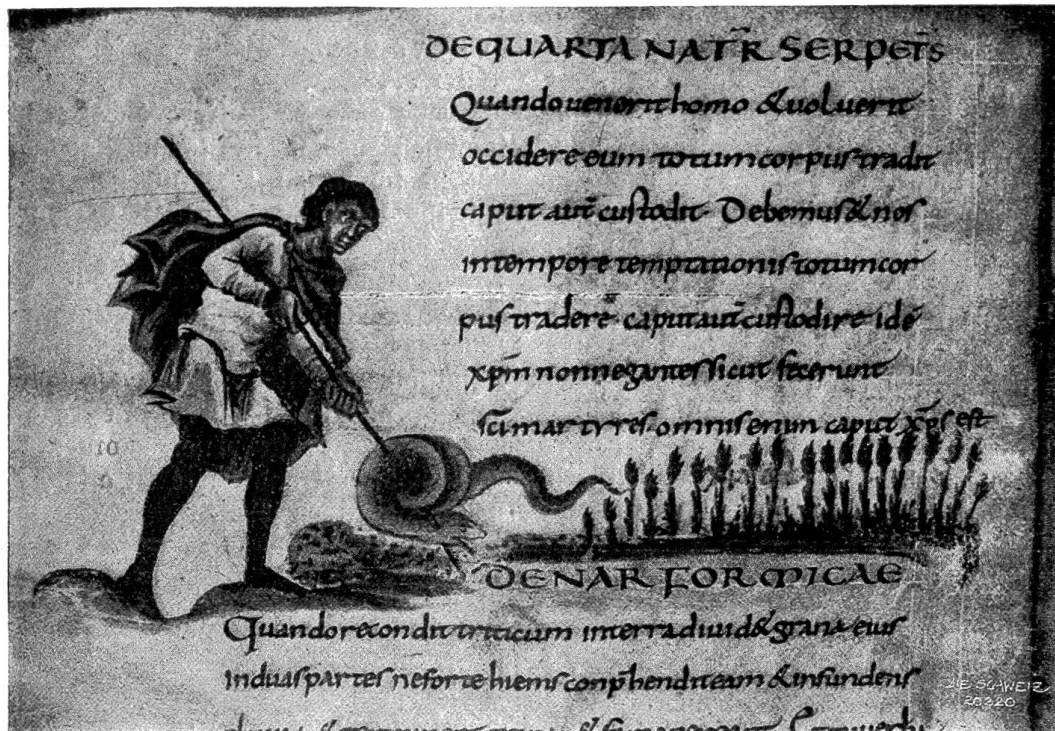 DE QUARTA NAT̅R SERPET̅S
Quando uenerit homo & uoluerit
occidere eum totum corpus tradit
caput aut̅ custodit. Debemus & nos
in tempore temptationis totum cor
pus tradere caput aut̅ custodire idē
xp̅m non negantes sicut fecerunt
sc̅i martyres. omnis enim caput xp̅s est
DE NAR FORMICAE
Quando recondit triticum in terra diuid& grana eius
in duas partes ne forte hiems conp̅hendit eam & infundens
DIE SCHWEIZ
20320